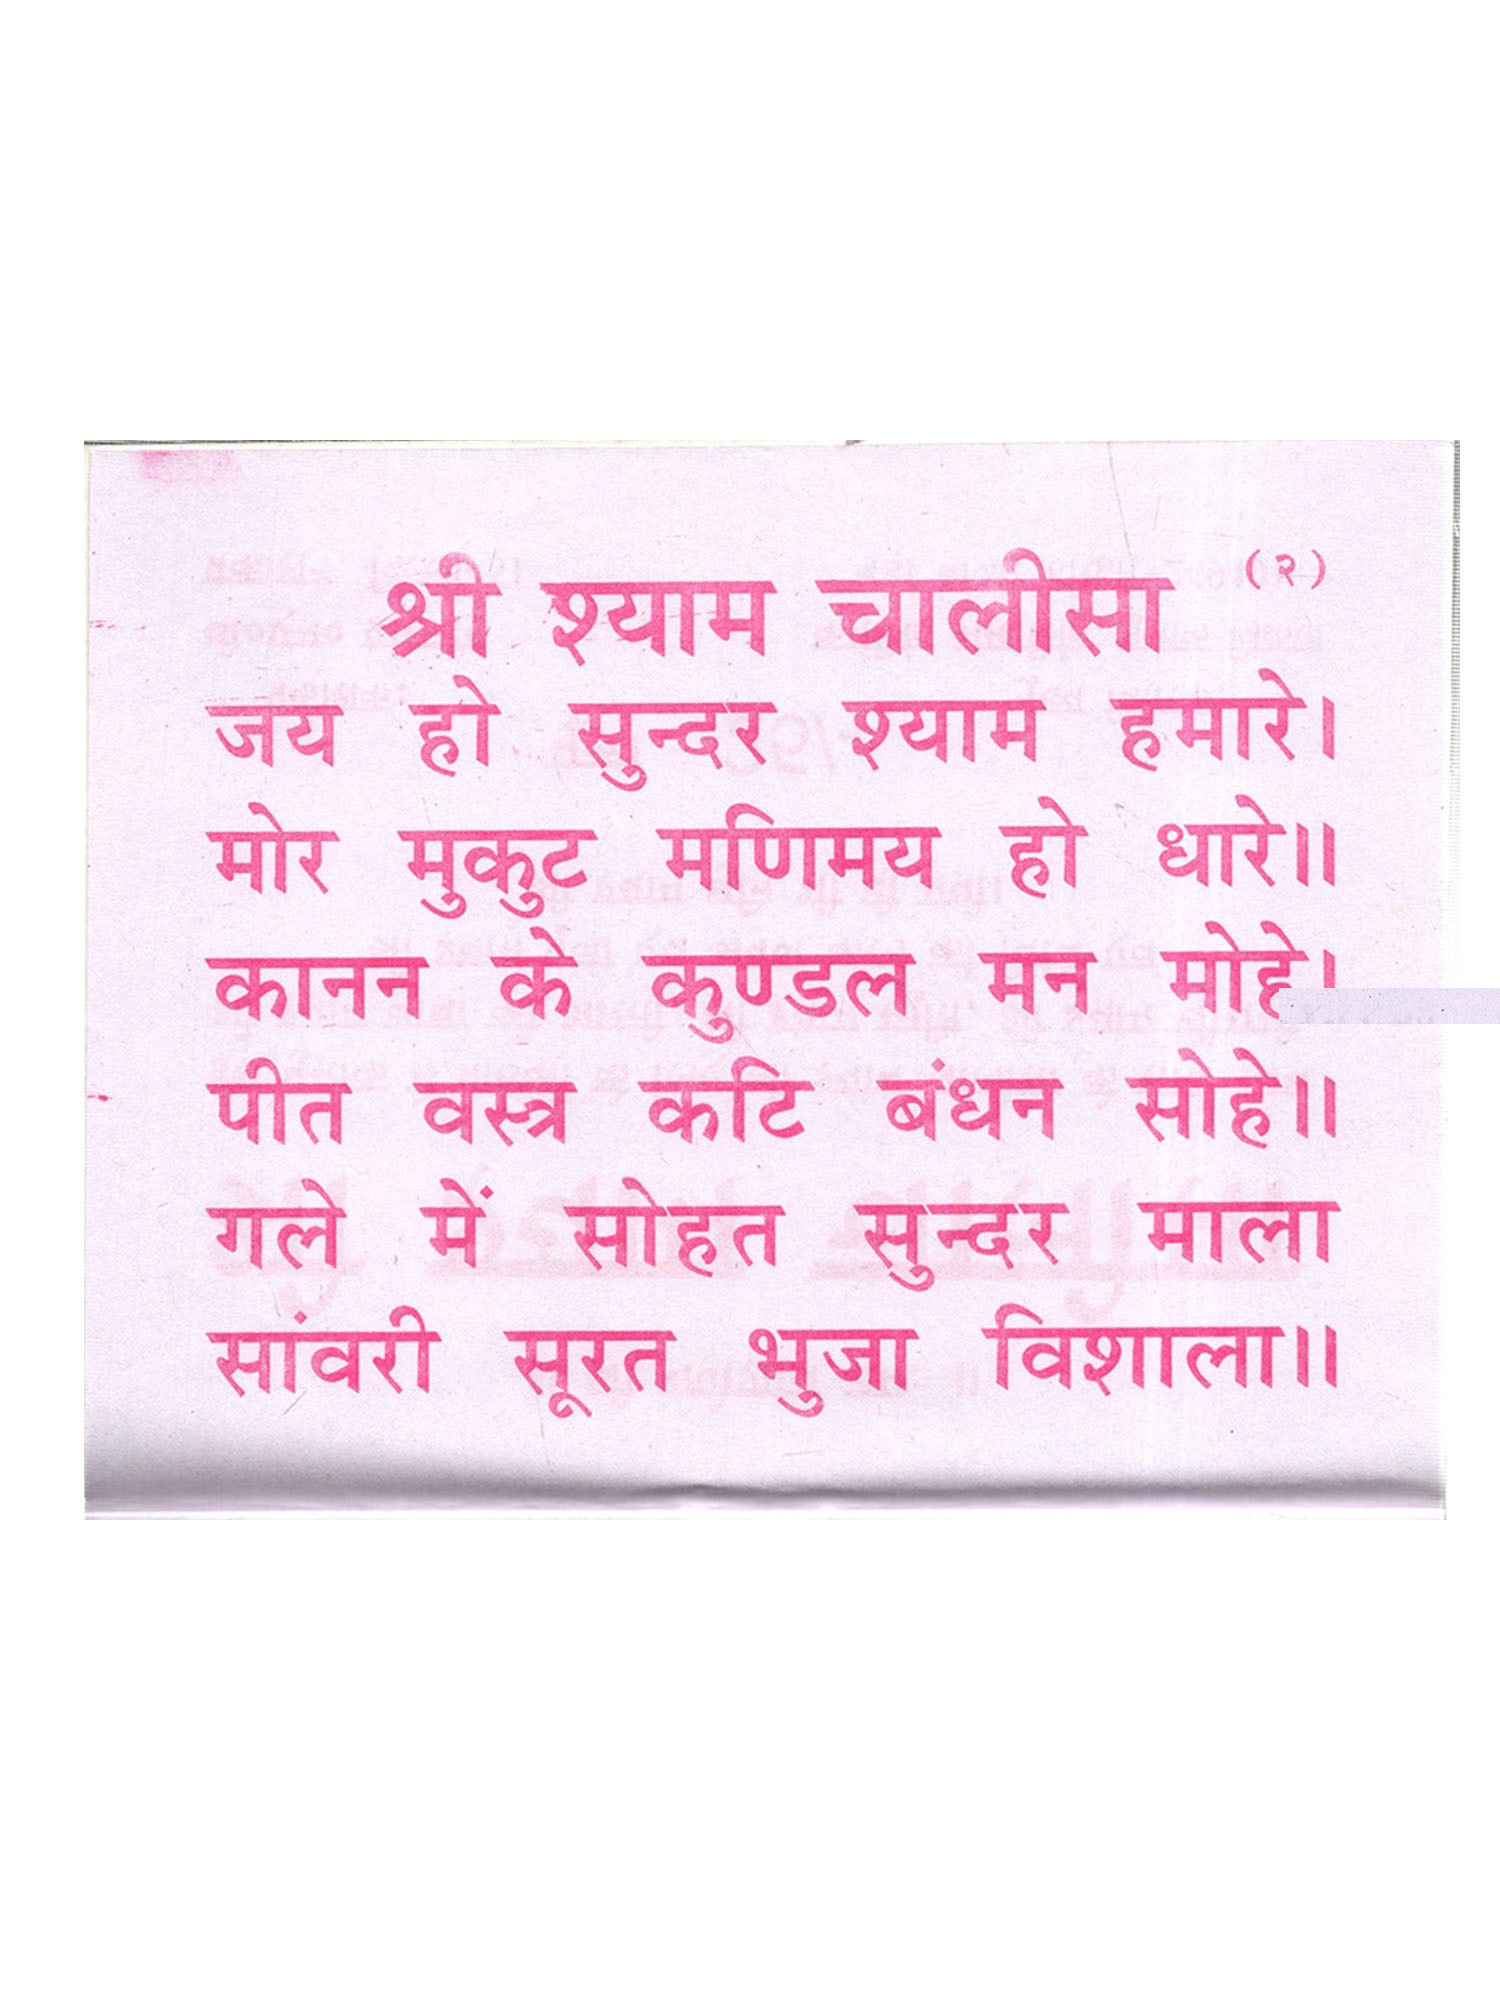 श्री श्याम चालीसा (२)
जय हो सुन्दर श्याम हमारे।
मोर मुकुट मणिमय हो धारे॥
कानन के कुण्डल मन मोहे।
पीत वस्त्र कटि बंधन सोहे॥
गले में सोहत सुन्दर माला
सांवरी सूरत भुजा विशाला॥